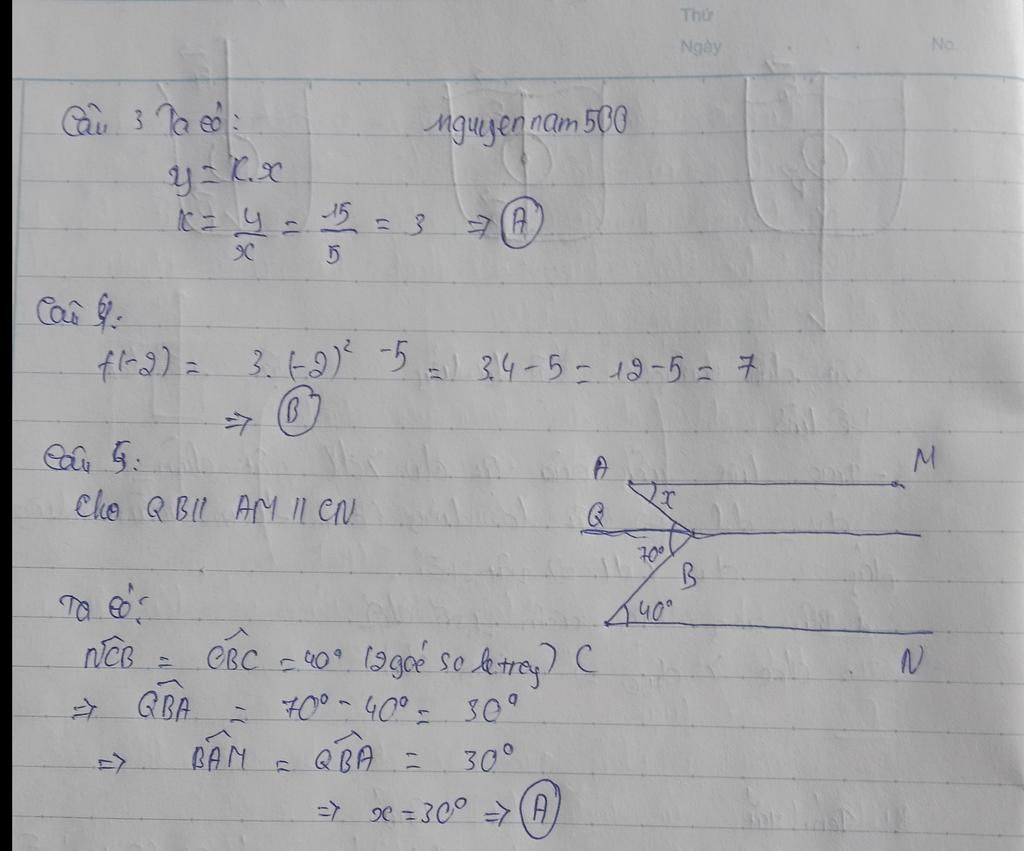 Thứ
Ngày
No
Câu 3 Ta có:
nguyennam500
y = k.x
k = y/x = 15/5 = 3 => A
Câu 4:
f(-2) = 3. (-2)² -5 = 3.4 - 5 = 12 - 5 = 7
=> B
Câu 5:
Cho QB// AM // CN
A M
x
Q
70°
B
40°
C N
Ta có:
NCB = QBC = 40° (2 goé so le trog)
=> QBA = 70° - 40° = 30°
=> BAM = QBA = 30°
=> x = 30° => A